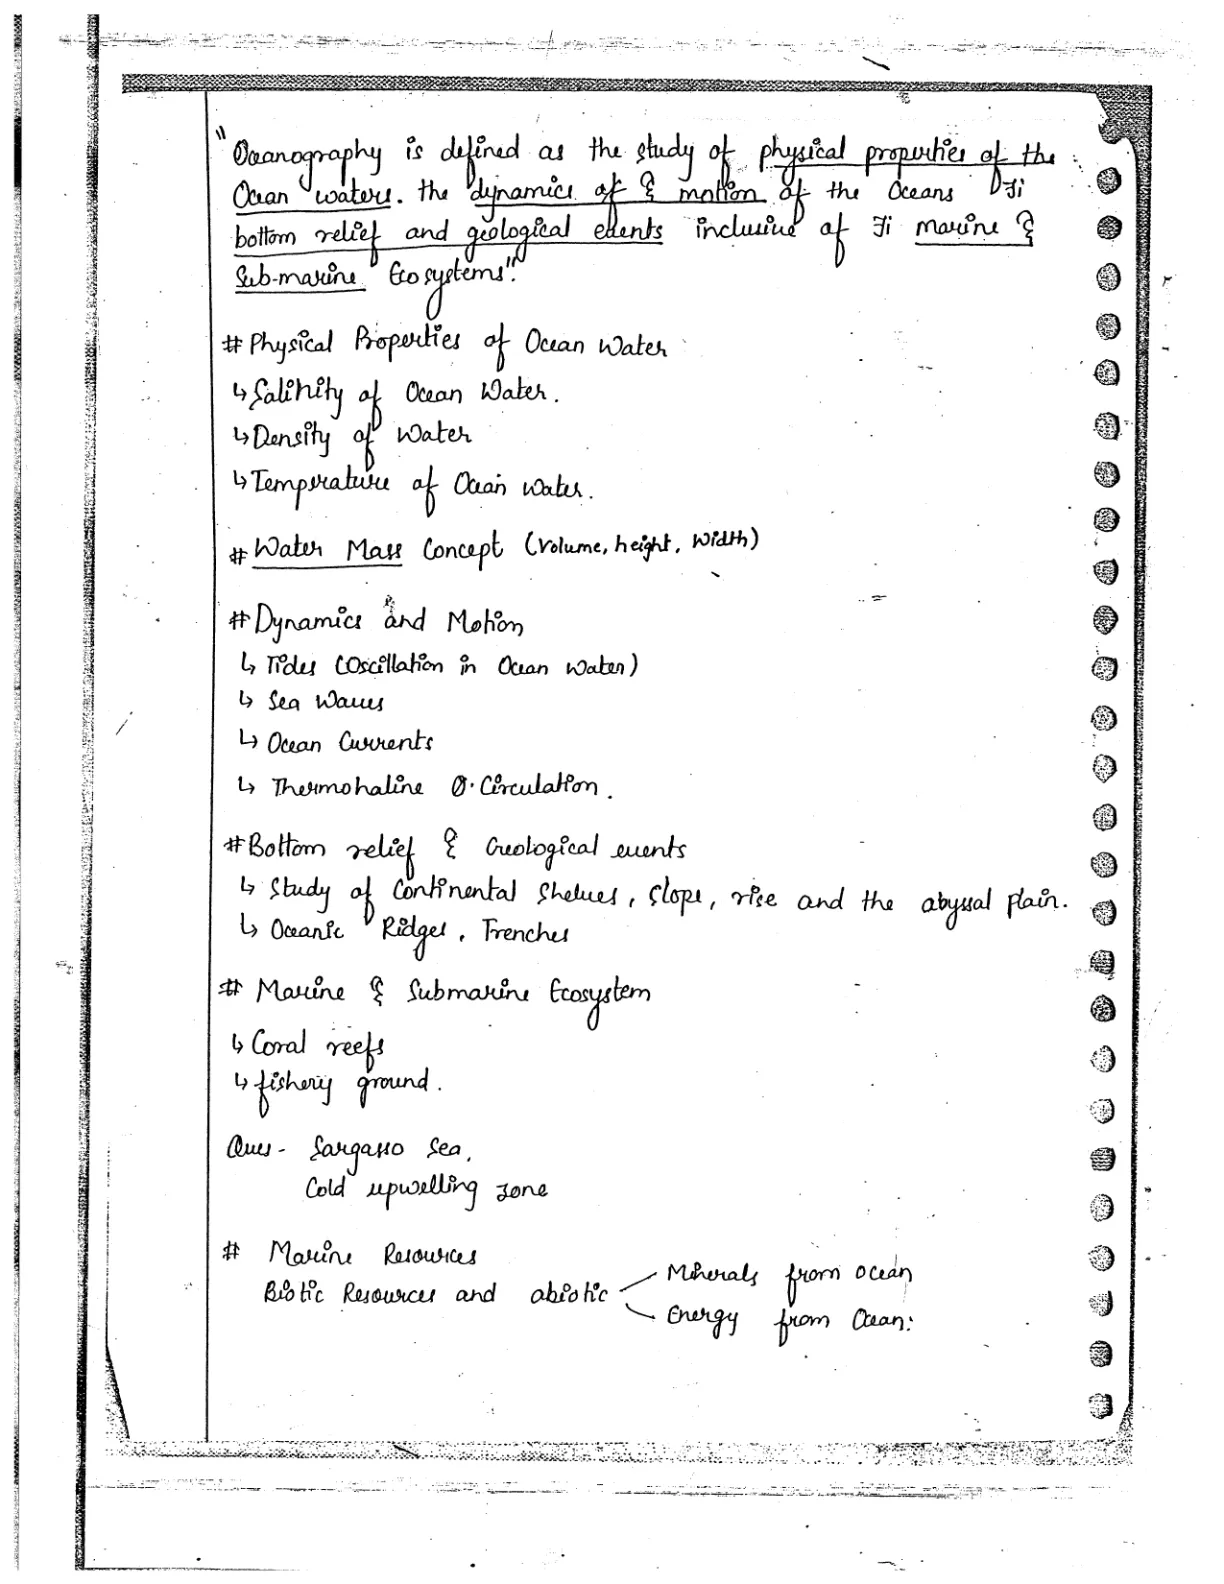 "Oceanography is defined as the study of physical properties of the
Ocean waters. the dynamics of & motion of the Oceans
bottom relief and geological events inclusive of marine &
Sub-marine Ecosystems".
# Physical Properties of Ocean Water
↳ Salinity of Ocean Water.
↳ Density of Water
↳ Temperature of Ocean water.
# Water Mass Concept (Volume, height, Width)
# Dynamics and Motion
↳ Tides (Oscillation in Ocean Water)
↳ Sea Waves
↳ Ocean Currents
↳ Thermohaline O. Circulation.
# Bottom relief & Geological events
↳ Study of Continental Shelves, Slope, rise and the abyssal plain.
↳ Oceanic Ridges, Trenches
# Marine & Submarine Ecosystem
↳ Coral reefs
↳ fishery ground.
Ques - Sargasso Sea,
Cold upwelling zone
# Marine Resources
Minerals from Ocean
Biotic Resources and abiotic
Energy from Ocean.